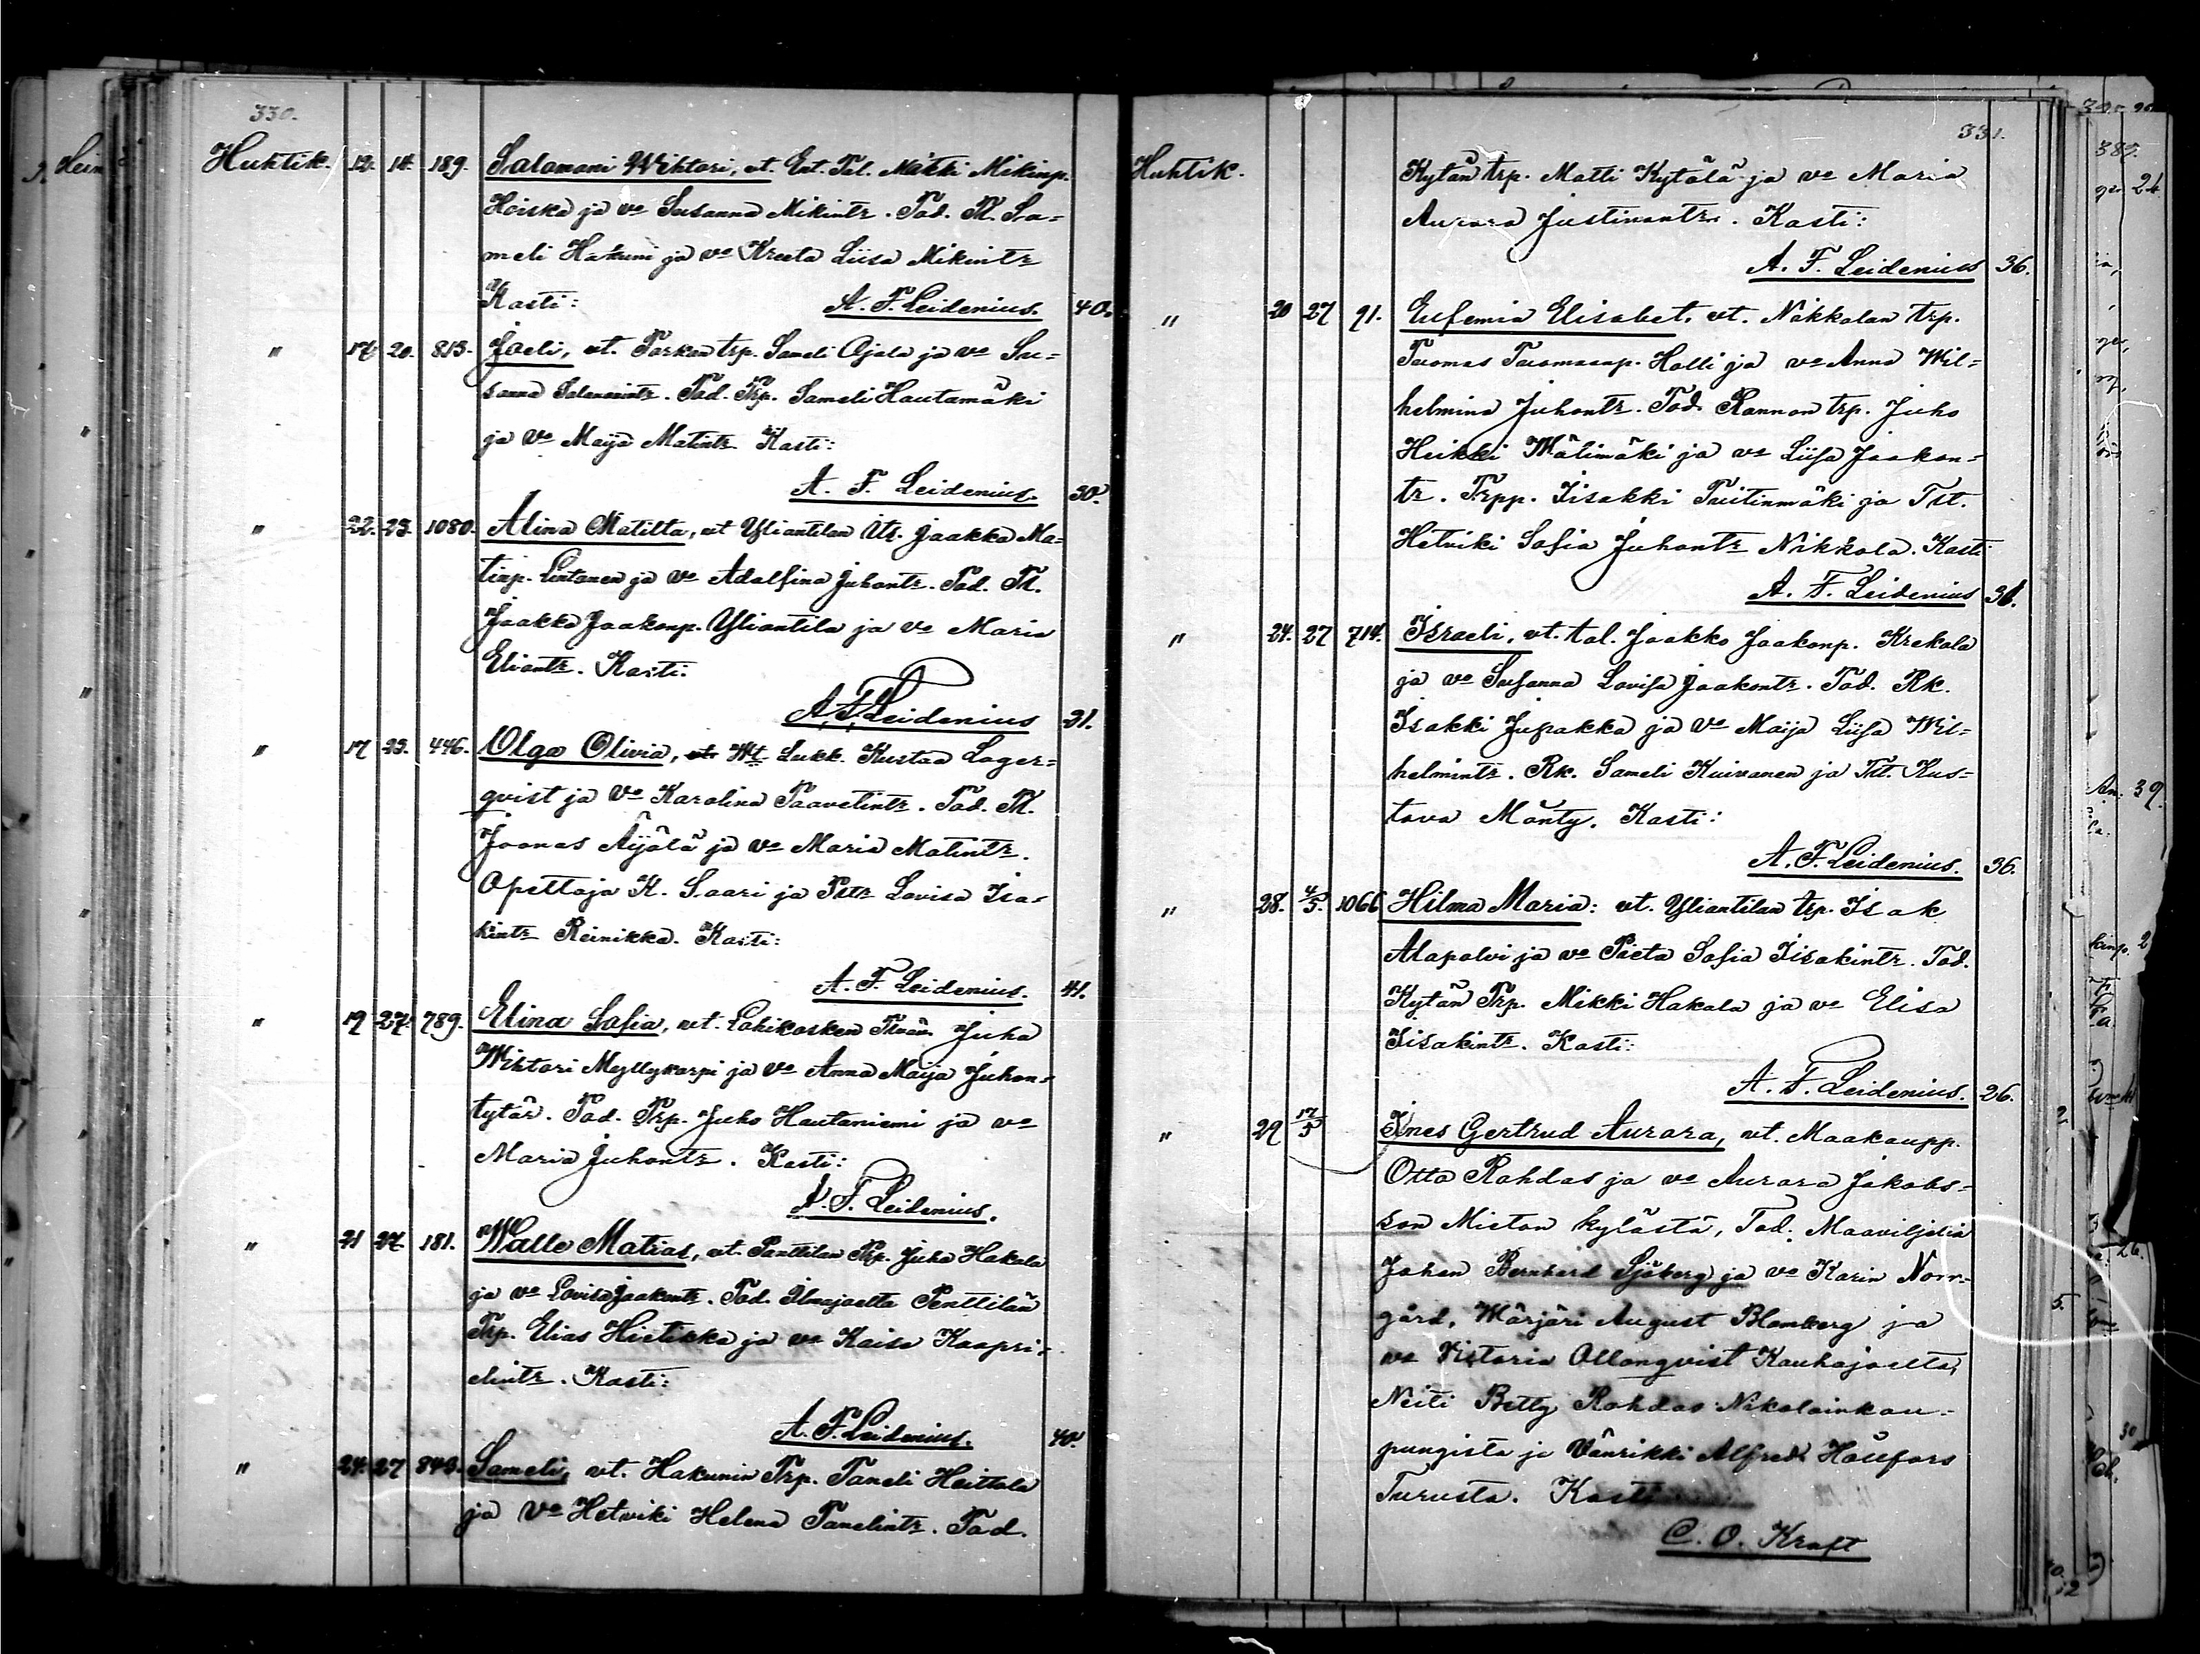 330.
Huhtik. 12. 14. 189. Salomoni Wihtori, vt. Ent. Tal. Mikki Mikinp.
Hoiska ja vo Susanna Mikintr. Tod. Tl. Sa-
meli Hakuni ja vo Kreeta Liisa Mikintr
Kasti: A. F. Leidenius. 40.
" 17. 20. 813. Joeli, vt. trp. Sameli Ojala ja vo Su-
sanna Salomonintr. Tod. Trp. Sameli Hautamäki
ja vo Maija Matintr. Kasti:
A. F. Leidenius. 30.
" 22. 23. 1080. Alina Matilta, vt Yliantilan Its. Jaakko Ma-
tinp. Lintanen ja vo Adolfina Juhontr. Tod. Tl.
Jaakko Jaakonp. Yliantila ja vo Maria
Eliantr. Kasti:
A. F. Leidenius 31.
" 17 23. 446. Olga Olivia, vt Wt. Lukk. Kustaa Lager-
qvist ja vo Karolina Paavelintr. Tod. Tl.
Joonas Äijälä ja vo Maria Matintr.
Opettaja K. Saari ja Pstr Lovisa Isa-
kintr Reinikka. Kasti:
A. F. Leidenius. 41.
" 19 27. 789. Elina Sofia, vt. Lohikosken Juha
Wihtori Myllykarpi ja vo Anna Maija Juhon-
tytär. Tod. Trp. Juho Hautaniemi ja vo
Maria Juhontr. Kasti:
A. F. Leidenius.
" 21 27. 181. Walle Matias, vt. Panttilan Trp. Juha Hakala
ja vo Lovisa Jaakontr. Tod. Ilmajoelta Penttilän
Trp. Elias Hietikka ja vo Kaisa Kaapri-
elintr. Kasti:
A. F. Leidenius. 40.
" 24. 27 843. Sameli, vt. Hakunin Trp. Taneli Heittola
ja vo Hetviki Helena Tanelintr. Tod.
331.
Huhtik. Kytän trp. Matti Kytölä ja vo Maria
Aurora Justinantr. Kasti:
A. F. Leidenius 36.
" 20 27 91. Eufemia Elisabet, vt. Nikkolan trp.
Tuomas Tuomaanp. Holli ja vo Anna Wil-
helmina Juhontr. Tod. Rannon trp. Juho
Heikki Wälimäki ja vo Liisa Jaakon-
tr. Trpp. Iisakki Tuitinmäki ja Tst.
Hetviki Sofia Juhontr Nikkola. Kasti
A. F. Leidenius
" 24. 27 714. Israeli, vt. tal. Jaakko Jaakonp. Krekola
ja vo Susanna Lovisa Jaakontr. Tod. Rk.
Isakki Jupakka ja vo Maija Liisa Wil-
helmintr. Rk. Sameli Kuivanen ja Tst. Kus-
tava Mänty. Kasti:
A. F. Leidenius. 36.
" 28. 4/5. 1066 Hilma Maria: vt. Yliantilan trp. Isak
Alapolvi ja vo Pieta Sofia Iisakintr. Tod.
Kytän Trp. Mikki Hakala ja vo Elisa
Iisakintr. Kasti:
A. F. Leidenius. 26.
" 29 17/5 Ines Gertrud Aurora, vt. Maakaupp.
Otto Rohdas ja vo Aurora Jakobs-
son Mieton kylästä, Tod. Maaviljeliä
Johan Bernhard Sjöberg ja vo Karin Norr-
gård, Wärjäri August Blomberg ja
vo Victoria Ollonqvist Kauhajoelta,
Neiti Betty Rohdas Nikolainkau-
pungista ja Vänrikki Alfred Höufors
Turusta. Kasti
C. O. Kraft